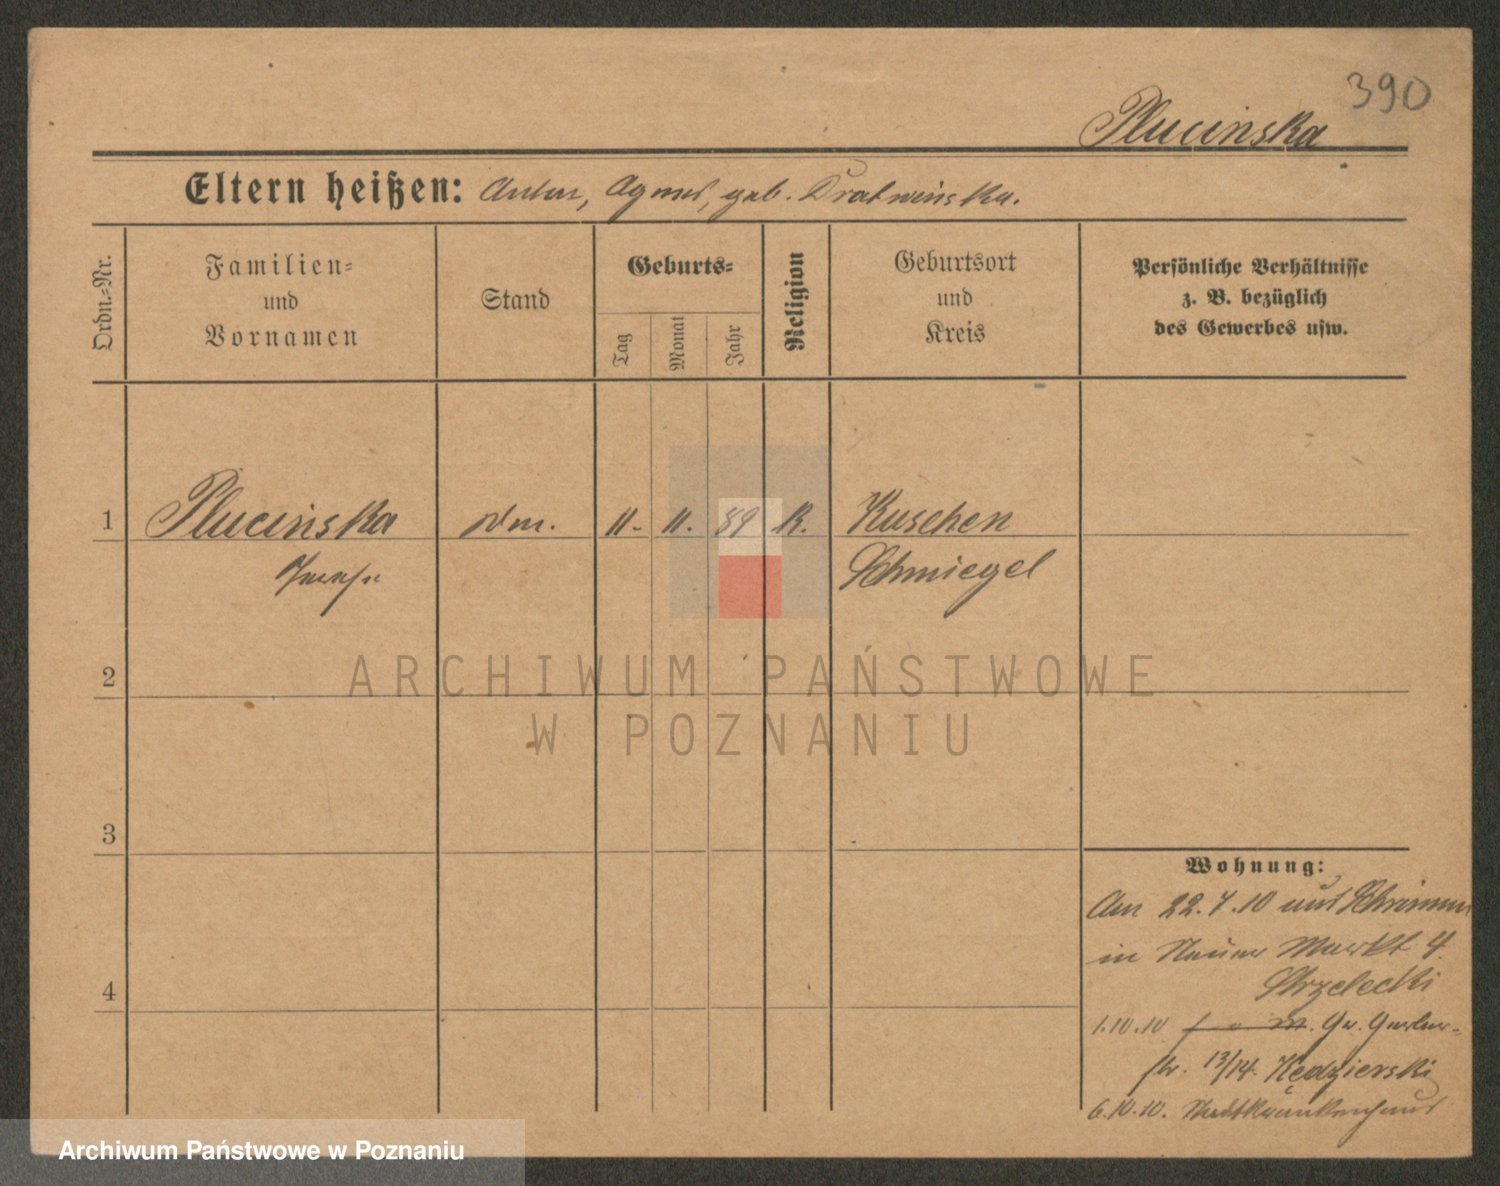 390
Plucinska
Eltern heißen: Anton, Agnes, geb. Dratwinska.
Ordn.-Nr.
Familien-
und
Vornamen
Stand
Geburts-
Tag
Monat
Jahr
Religion
Geburtsort
und
Kreis
Persönliche Verhältnisse
z. B. bezüglich
des Gewerbes usw.
1
Plucinska
11. 11. 89 K. Kuschen
Schmiegel
2
3
4
Wohnung:
Am 22.7.10 aus Schrimm
in Neuer Markt 4.
Strzelecki
1.10.10 Gr. Gerber-
str. 13/14. Kędzierski
6.10.10. Stadtkrankenhaus
ARCHIWUM PAŃSTWOWE
W POZNANIU
Archiwum Państwowe w Poznaniu